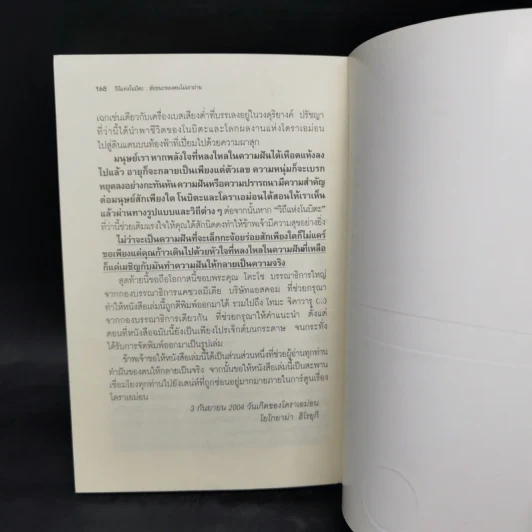 168 วิถีแห่งโนบิตะ : ชัยชนะของคนไม่เอาถ่าน
เฉกเช่นเดียวกับเครื่องเบสเสียงต่ำที่บรรเลงอยู่ในวงดุริยางค์ ปรัชญา
ที่ว่านี้ได้นำพาชีวิตของโนบิตะและโลกผลงานแห่งโดราเอม่อน
ไปสู่ดินแดนบนท้องฟ้าที่เปี่ยมไปด้วยความผาสุก
มนุษย์เราหากพลังใจที่หลงใหลในความฝันได้เหือดแห้งลง
ไปแล้ว อายุก็จะกลายเป็นเพียงแค่ตัวเลข ความหนุ่มก็จะเบรก
หยุดลงอย่างกะทันหัน ความฝันหรือความปรารถนามีความสำคัญ
ต่อมนุษย์สักเพียงใด โนบิตะและโดราเอม่อนได้สอนให้เราเห็น
แล้วผ่านทางรูปแบบและวิถีต่าง ๆ ต่อจากนั้นหาก "วิถีแห่งโนบิตะ"
ที่ว่านี้ช่วยเติมแรงใจให้คุณได้สักนิดคงทำให้ข้าพเจ้ามีความสุขอย่างยิ่ง
ไม่ว่าจะเป็นความฝันที่จะเล็กกะจ้อยร่อยสักเพียงใดก็ไม่แคร์
ขอเพียงแค่คุณก้าวเดินไปด้วยหัวใจที่หลงใหลในความฝันที่เหลือ
ก็แค่เผชิญกับมันทำความฝันให้กลายเป็นความจริง
สุดท้ายนี้ขอถือโอกาสนี้ขอบพระคุณ โคะโช บรรณาธิการใหญ่
จากกองบรรณาธิการแคชวลมีเดีย บริษัทแอสคอม ที่ช่วยกรุณา
ทำให้หนังสือเล่มนี้ได้ถูกตีพิมพ์ออกมาได้ รวมไปถึง โทมะ จิคาวารุ
จากกองบรรณาธิการเดียวกัน ที่ช่วยกรุณาให้คำแนะนำ ตั้งแต่
ตอนที่หนังสือฉบับนี้ยังเป็นเพียงโปรเจ็กต์บนกระดาษ จนกระทั่ง
ได้รับการจัดพิมพ์ออกมาเป็นรูปเล่ม
ข้าพเจ้าขอให้หนังสือเล่มนี้ได้เป็นส่วนส่วนหนึ่งที่ช่วยผู้อ่านทุกท่าน
ทำฝันของตนให้กลายเป็นจริง จากนั้นขอให้หนังสือเล่มนี้เป็นสะพาน
เชื่อมโยงทุกท่านไปยังเสน่ห์ที่ถูกซ่อนอยู่มากมายภายในการ์ตูนเรื่อง
โดราเอม่อน
3 กันยายน 2004 วันเกิดของโดราเอม่อน
โยโกยาม่า ฮิโรยูกิ